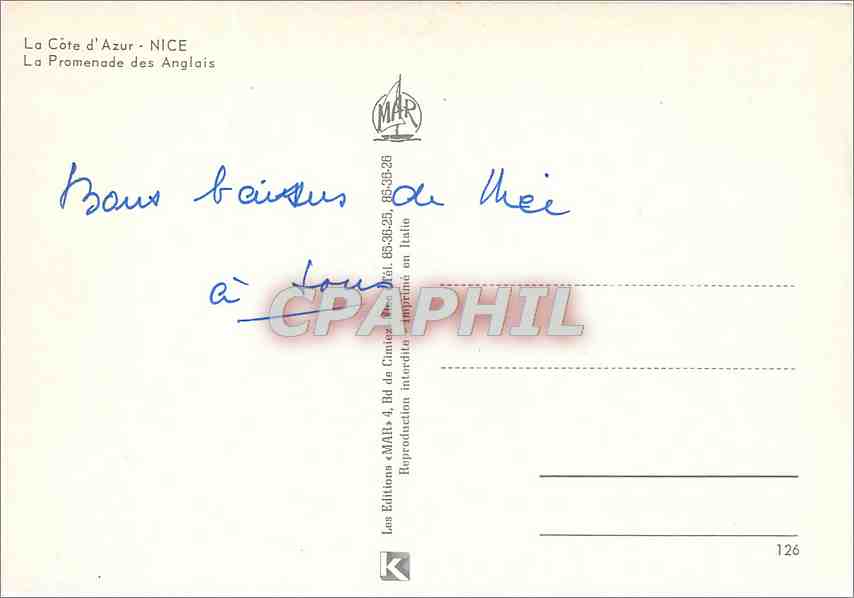 La Côte d'Azur - NICE
La Promenade des Anglais
MAR
Bons baisers de Nice
à tous
CPAPHIL
Les Editions «MAR» 4, Bd de Cimiez, Nice, Tél. 85-36-25, 85-36-26
Reproduction interdite - imprimé en Italie
K
126